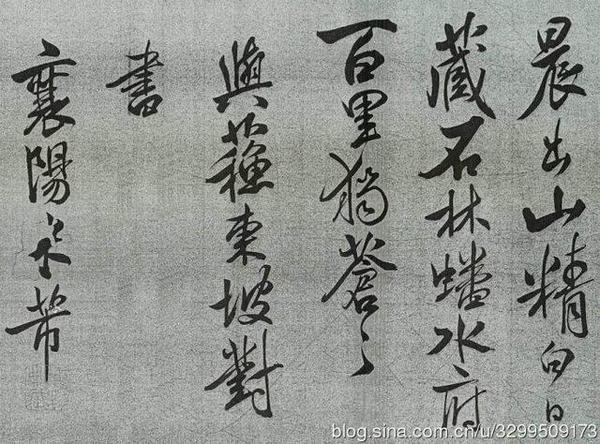 晨出山精白日
藏石林蟠水府
百里獨蒼〻
與蘓東坡對
書
襄陽米芾
blog.sina.com.cn/u/3299509173